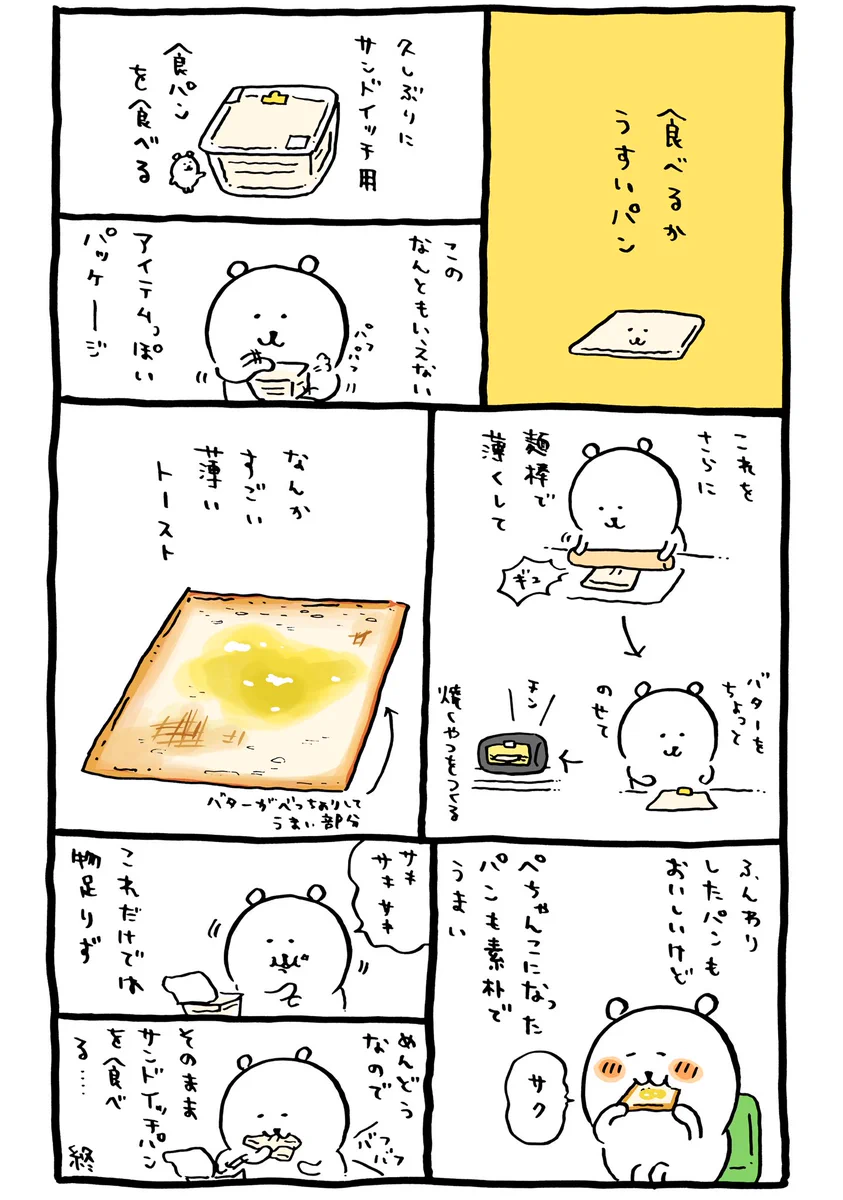 食べるか
うすいパン
久しぶりに
サンドイッチ用
食パン
を食べる
この
なんともいえない
アイテムっぽい
パッケージ
パフ
パフ
これを
さらに
麺棒で
薄くして
ギュ
バターを
ちょって
のせて
チン
焼くやつをつくる
なんか
すごい
薄い
トースト
バターがべっちょりして
うまい部分
ふんわり
したパンも
おいしいけど
ぺちゃんこになった
パンも素朴で
うまい
サク
サキ
サキサキ
これだけでは
物足りず
めんどう
なので
そのまま
サンドイッチパン
を食べ
る……
バフ
バフ
終